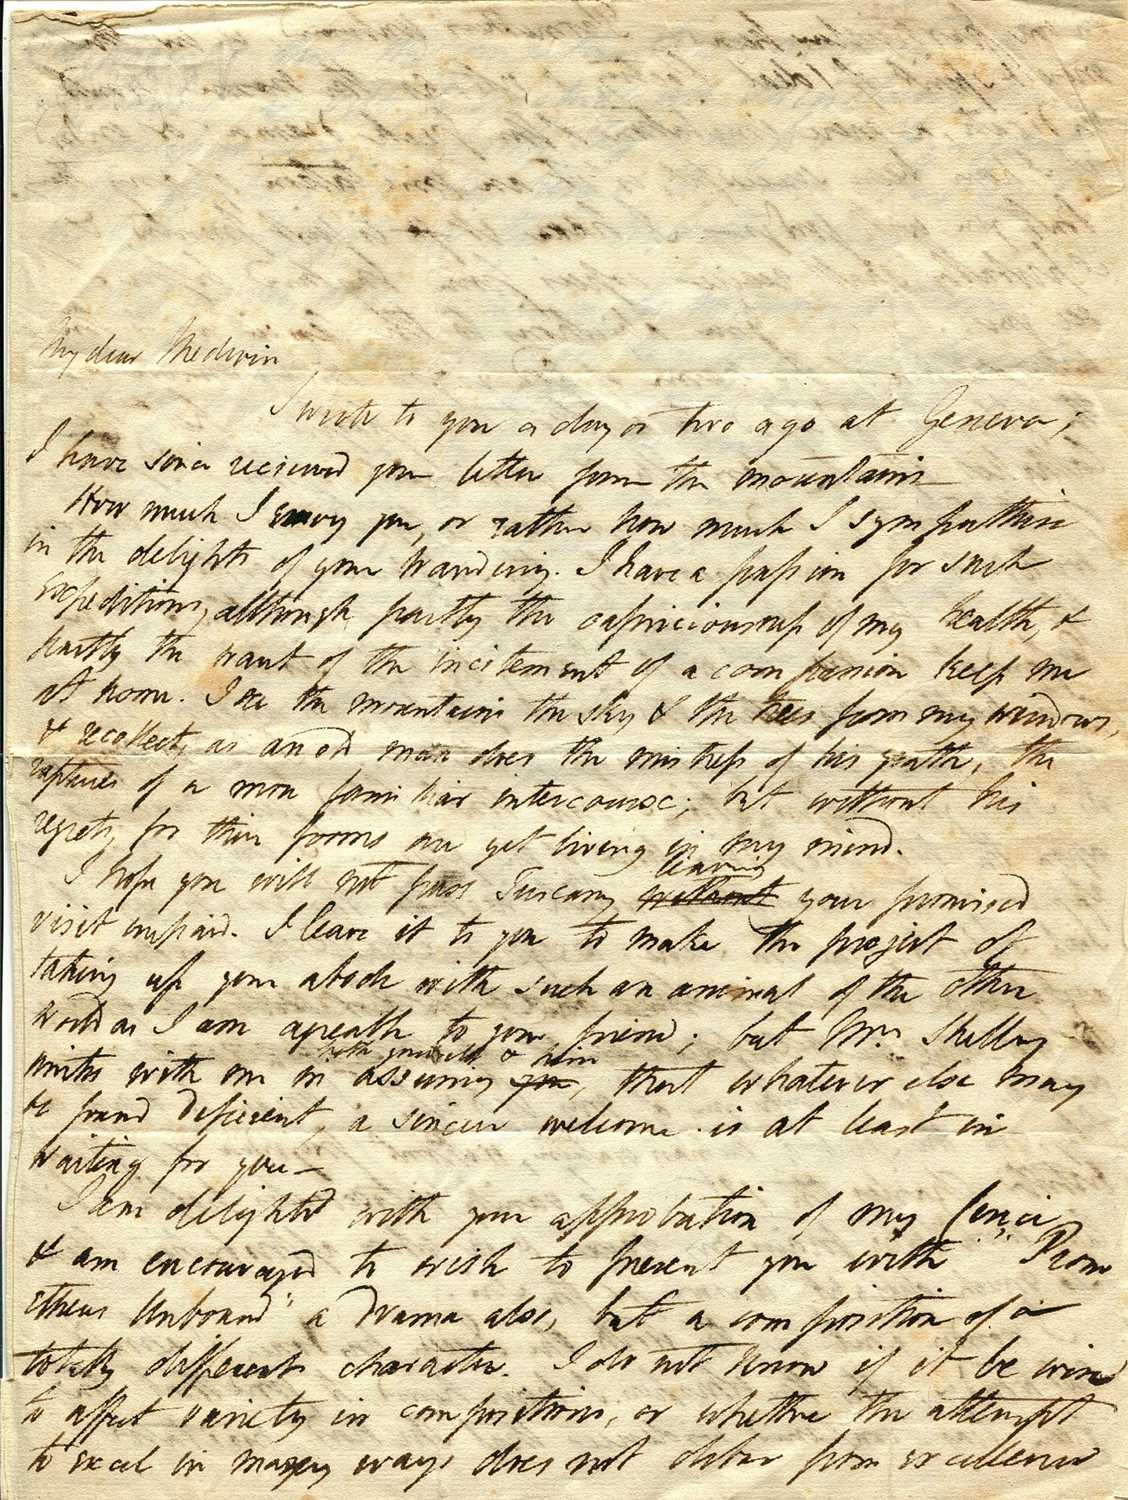 My dear Medwin
I wrote to you a day or two ago at Geneva;
I have since recieved your letter from the mountains
How much I envy you, or rather how much I sympathise
in the delights of your wandering. I have a passion for such
expeditions, although partly the capriciousness of my health, &
partly the want of the incitement of a companion keep me
at home. I see the mountains the sky & the trees from my windows,
& recollect, as an old man does the mistress of his youth, the
raptures of a more familiar intercourse; but without his
regrets, for their forms are yet living in my mind.
I hope you will not pass Tuscany without leaving your promised
visit unpaid. I leave it to you to make the project of
taking up your abode with such an animal of the other
world as I am agreable to your friend; but Mrs Shelley
unites with me in assuring you both yourself & him, that whatever else may
be found deficient, a sincere welcome is at least in
waiting for you—
I am delighted with your approbation of my Cenci,
& am encouraged to wish to present you with "Prom
etheus Unbound" a drama also, but a composition of a
totally different character. I do not know if it be wise
to affect variety in compositions, or whether the attempt
to excel in many ways does not debar from excellence